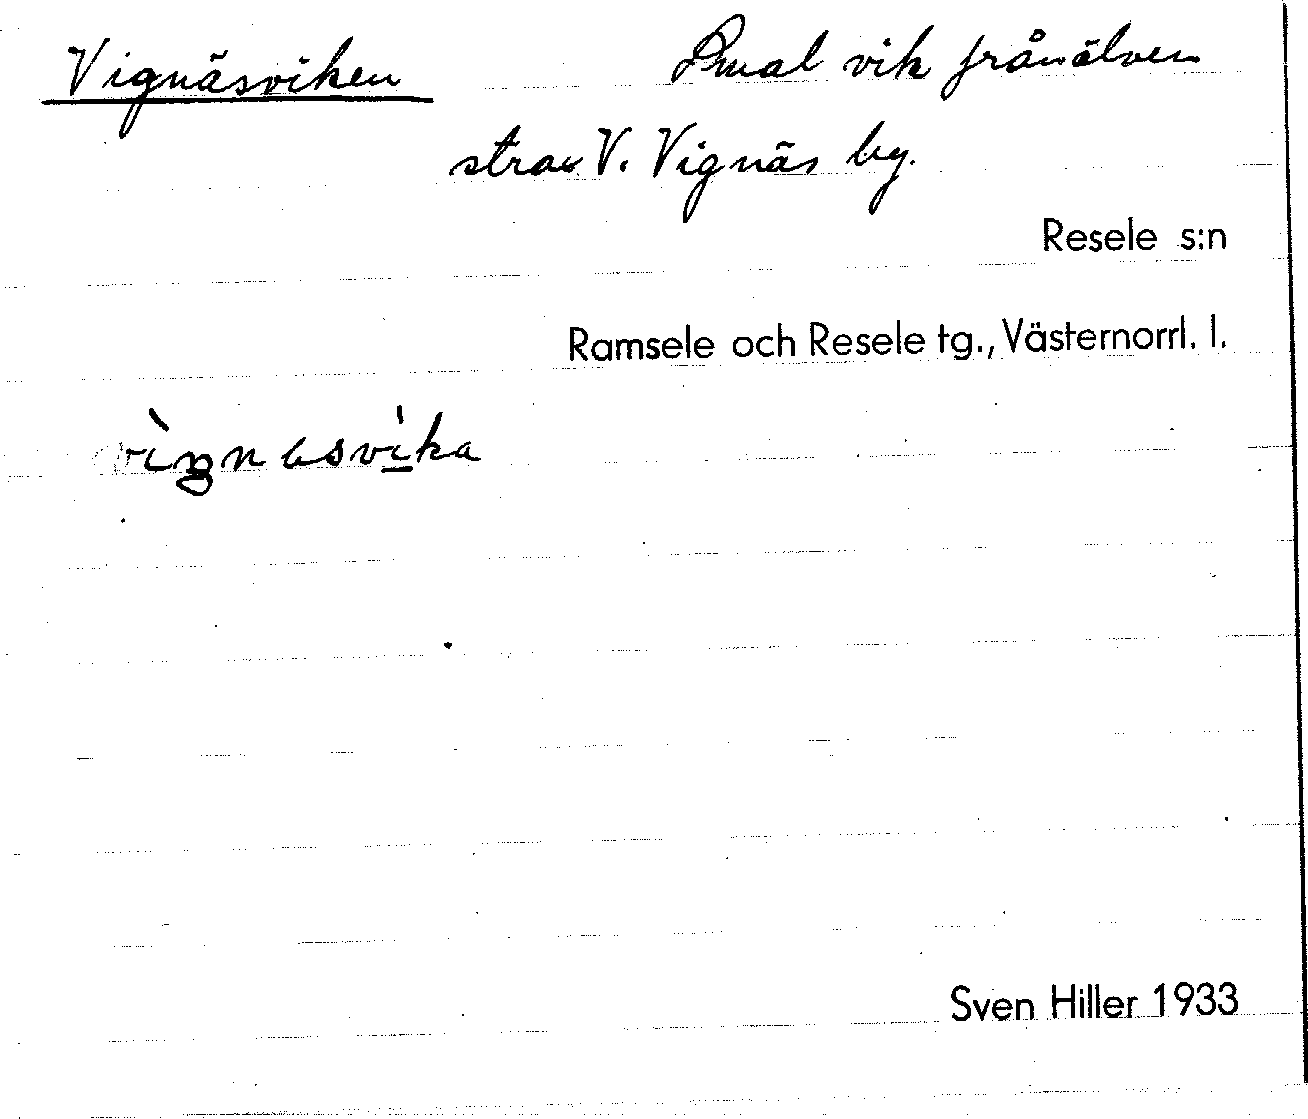 Vignäsviken Smal vik från älven
strax V. Vignäs by.
Resele s:n
Ramsele och Resele tg., Västernorrl. l.
Sven Hiller 1933